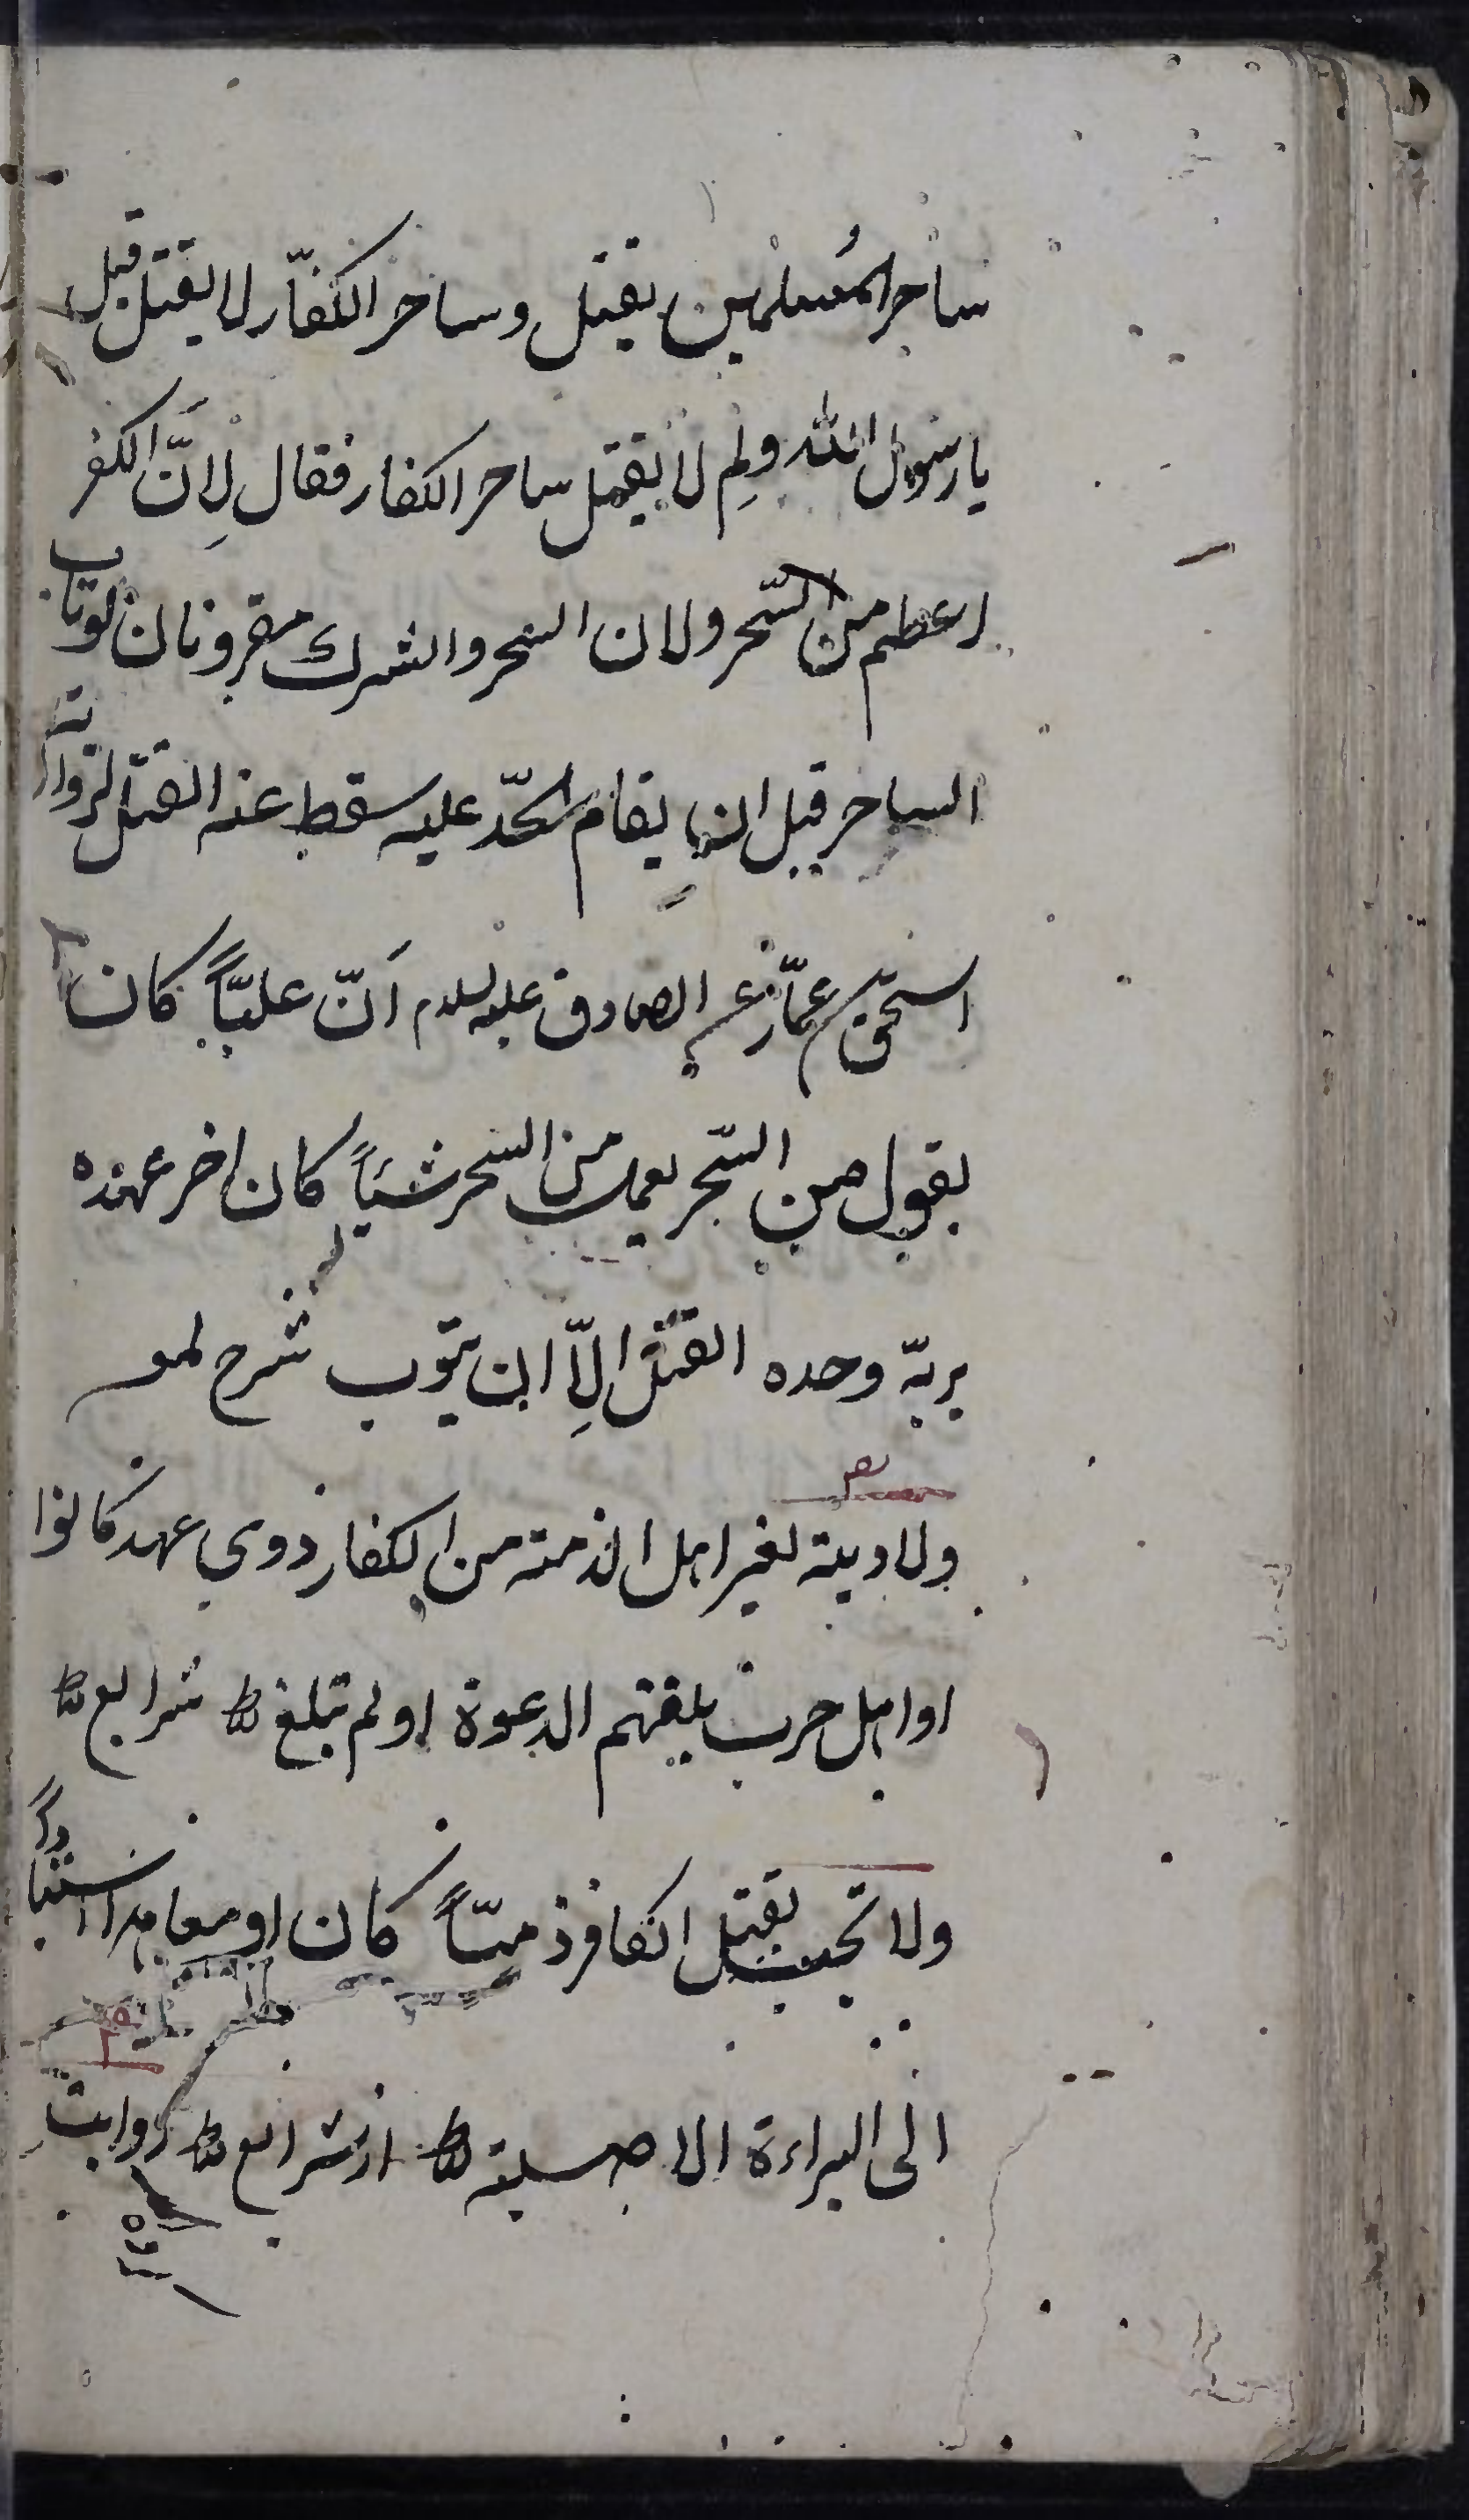 ساحر المُسلمين يقتل وساحر الكفّار لا يقتل قيل
يا رسول الله ولِم لا يقتل ساحر الكفار فقال لِاَنّ الكفر
اعظم من السّحر ولان السحر والشرك مقرونان لو تاب
الساحر قبل ان يقام الحدّ عليه سقط عنه القتل لرواية
اسحق بن عمّار عن الصادق عليه السلام اَنّ عليّاً كان
يقول من السّحر يعمل من السحر شيئاً كان اخر عهده
بربّه وحده القتل اِلّا ان يتوب شرح لمعه
ولا دية لغير اهل الذمة من الكفار ذوي عهد كانوا
او اهل حرب بلغتهم الدعوة او لم تبلغ شرايع
ولا تجب بقتل الكافر ذميّاً كان او معاهدا استناداً
الى البراءة الاصلية از شرايع روايت